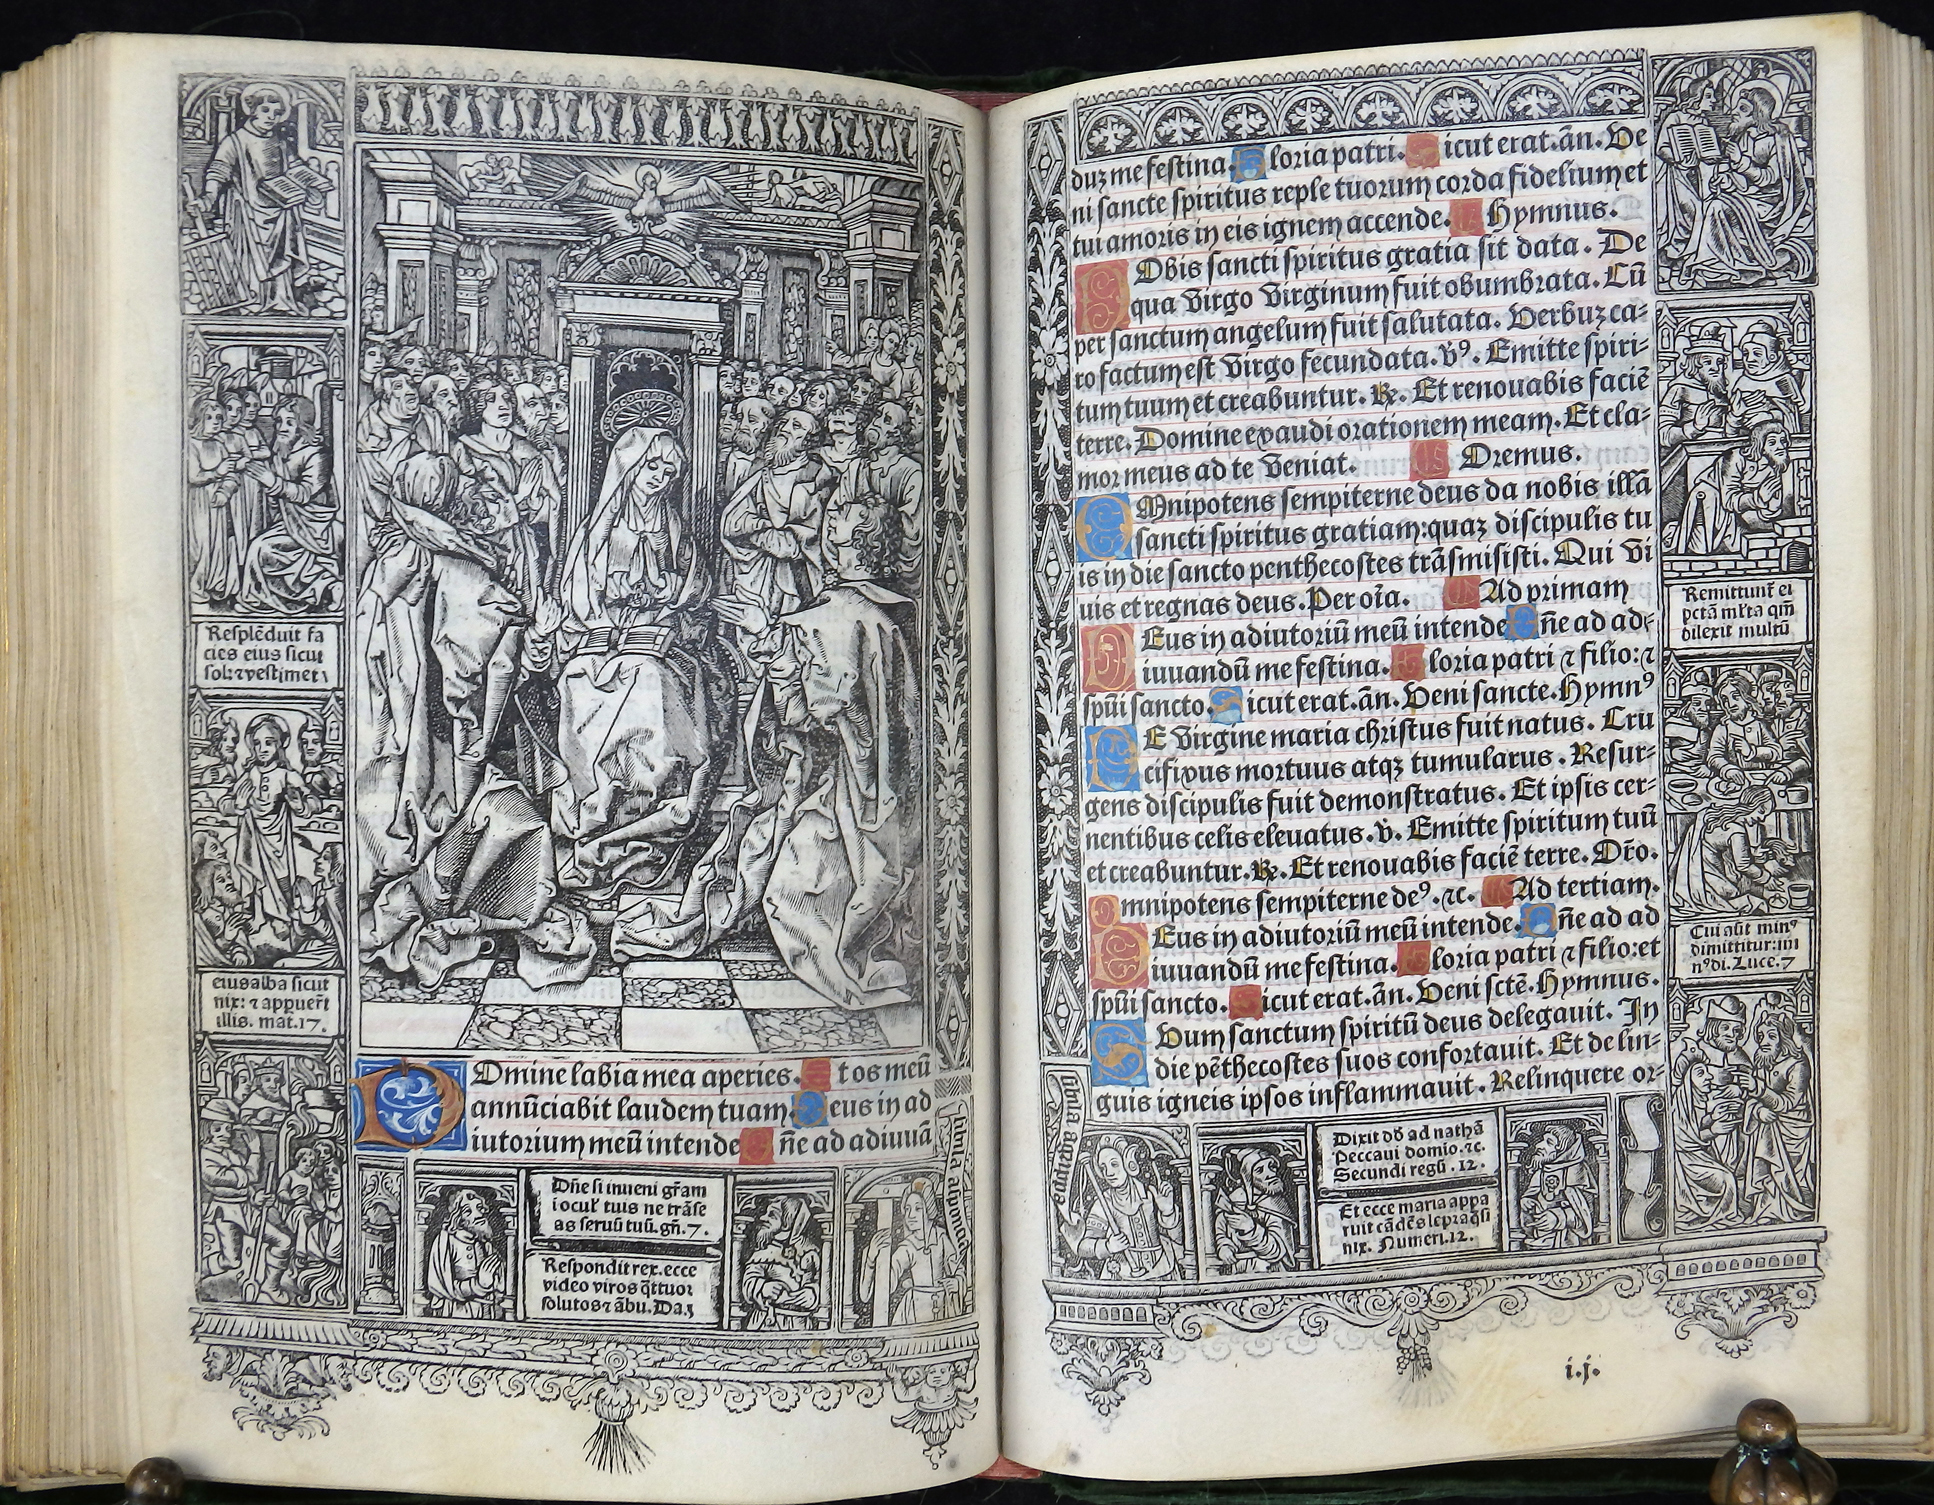 Resplēduit fa
cies eius sicut
sol: ⁊ vestimet
eius alba sicut
nix: ⁊ appuer̄t
illis. mat. 17.
Domine labia mea aperies. Et os meū
annūciabit laudem tuam. Deus in ad
iutorium meū intende Dn̄e ad adiuuā
Dn̄e si inueni gr̄am
i ocul' tuis ne trāse
as seruū tuū. gn̄. 7.
Respondit rex. ecce
video viros q̄ttuor
solutos ⁊ ābu. Da. 3
duꝫ me festina. Gloria patri. Sicut erat. ān. Ve
ni sancte spiritus reple tuorum corda fidelium et
tui amoris in eis ignem accende. Hymnus.
Nobis sancti spiritus gratia sit data. De
qua virgo virginum fuit obumbrata. Cū
per sanctum angelum fuit salutata. Verbuꝫ ca-
ro factum est virgo fecundata. v̄ꝰ. Emitte spiri-
tum tuum et creabuntur. ꝶ. Et renouabis faciē
terre. Domine exaudi orationem meam. Et cla-
mor meus ad te veniat. Oremus.
Omnipotens sempiterne deus da nobis illā
sancti spiritus gratiam: quaꝫ discipulis tu
is in die sancto penthecostes trāsmisisti. Qui vi
uis et regnas deus. Per oīa. Ad primam
Deus in adiutoriū meū intende Dn̄e ad ad-
iuuandū me festina. Gloria patri ⁊ filio: ⁊
spūi sancto. Sicut erat. ān. Veni sancte. Hymnꝰ
De virgine maria christus fuit natus. Cru
cifixus mortuus atqꝫ tumulatus. Resur-
gens discipulis fuit demonstratus. Et ipsis cer-
nentibus celis eleuatus. v̄. Emitte spiritum tuū
et creabuntur. ꝶ. Et renouabis faciē terre. Or̄o.
Omnipotens sempiterne deꝰ. ⁊c. Ad tertiam.
Deus in adiutoriū meū intende. Dn̄e ad ad
iuuandū me festina. Gloria patri ⁊ filio: et
spūi sancto. Sicut erat. ān. Veni sctē. Hymnus.
Suum sanctum spiritū deus delegauit. In
die pēthecostes suos confortauit. Et de lin-
guis igneis ipsos inflammauit. Relinquere or-
Remittunt̄ ei
pctā ml'ta qm̄
dilexit multū
Cui aūt minꝰ
dimittitur: mi
nꝰ di. Luce. 7
Dixit dd̄ ad nathā
Peccaui domio. ⁊c.
Secundi regū. 12.
Et ecce maria appa
ruit cādēs lepra q̄si
nix. Numeri. 12.
i.j.